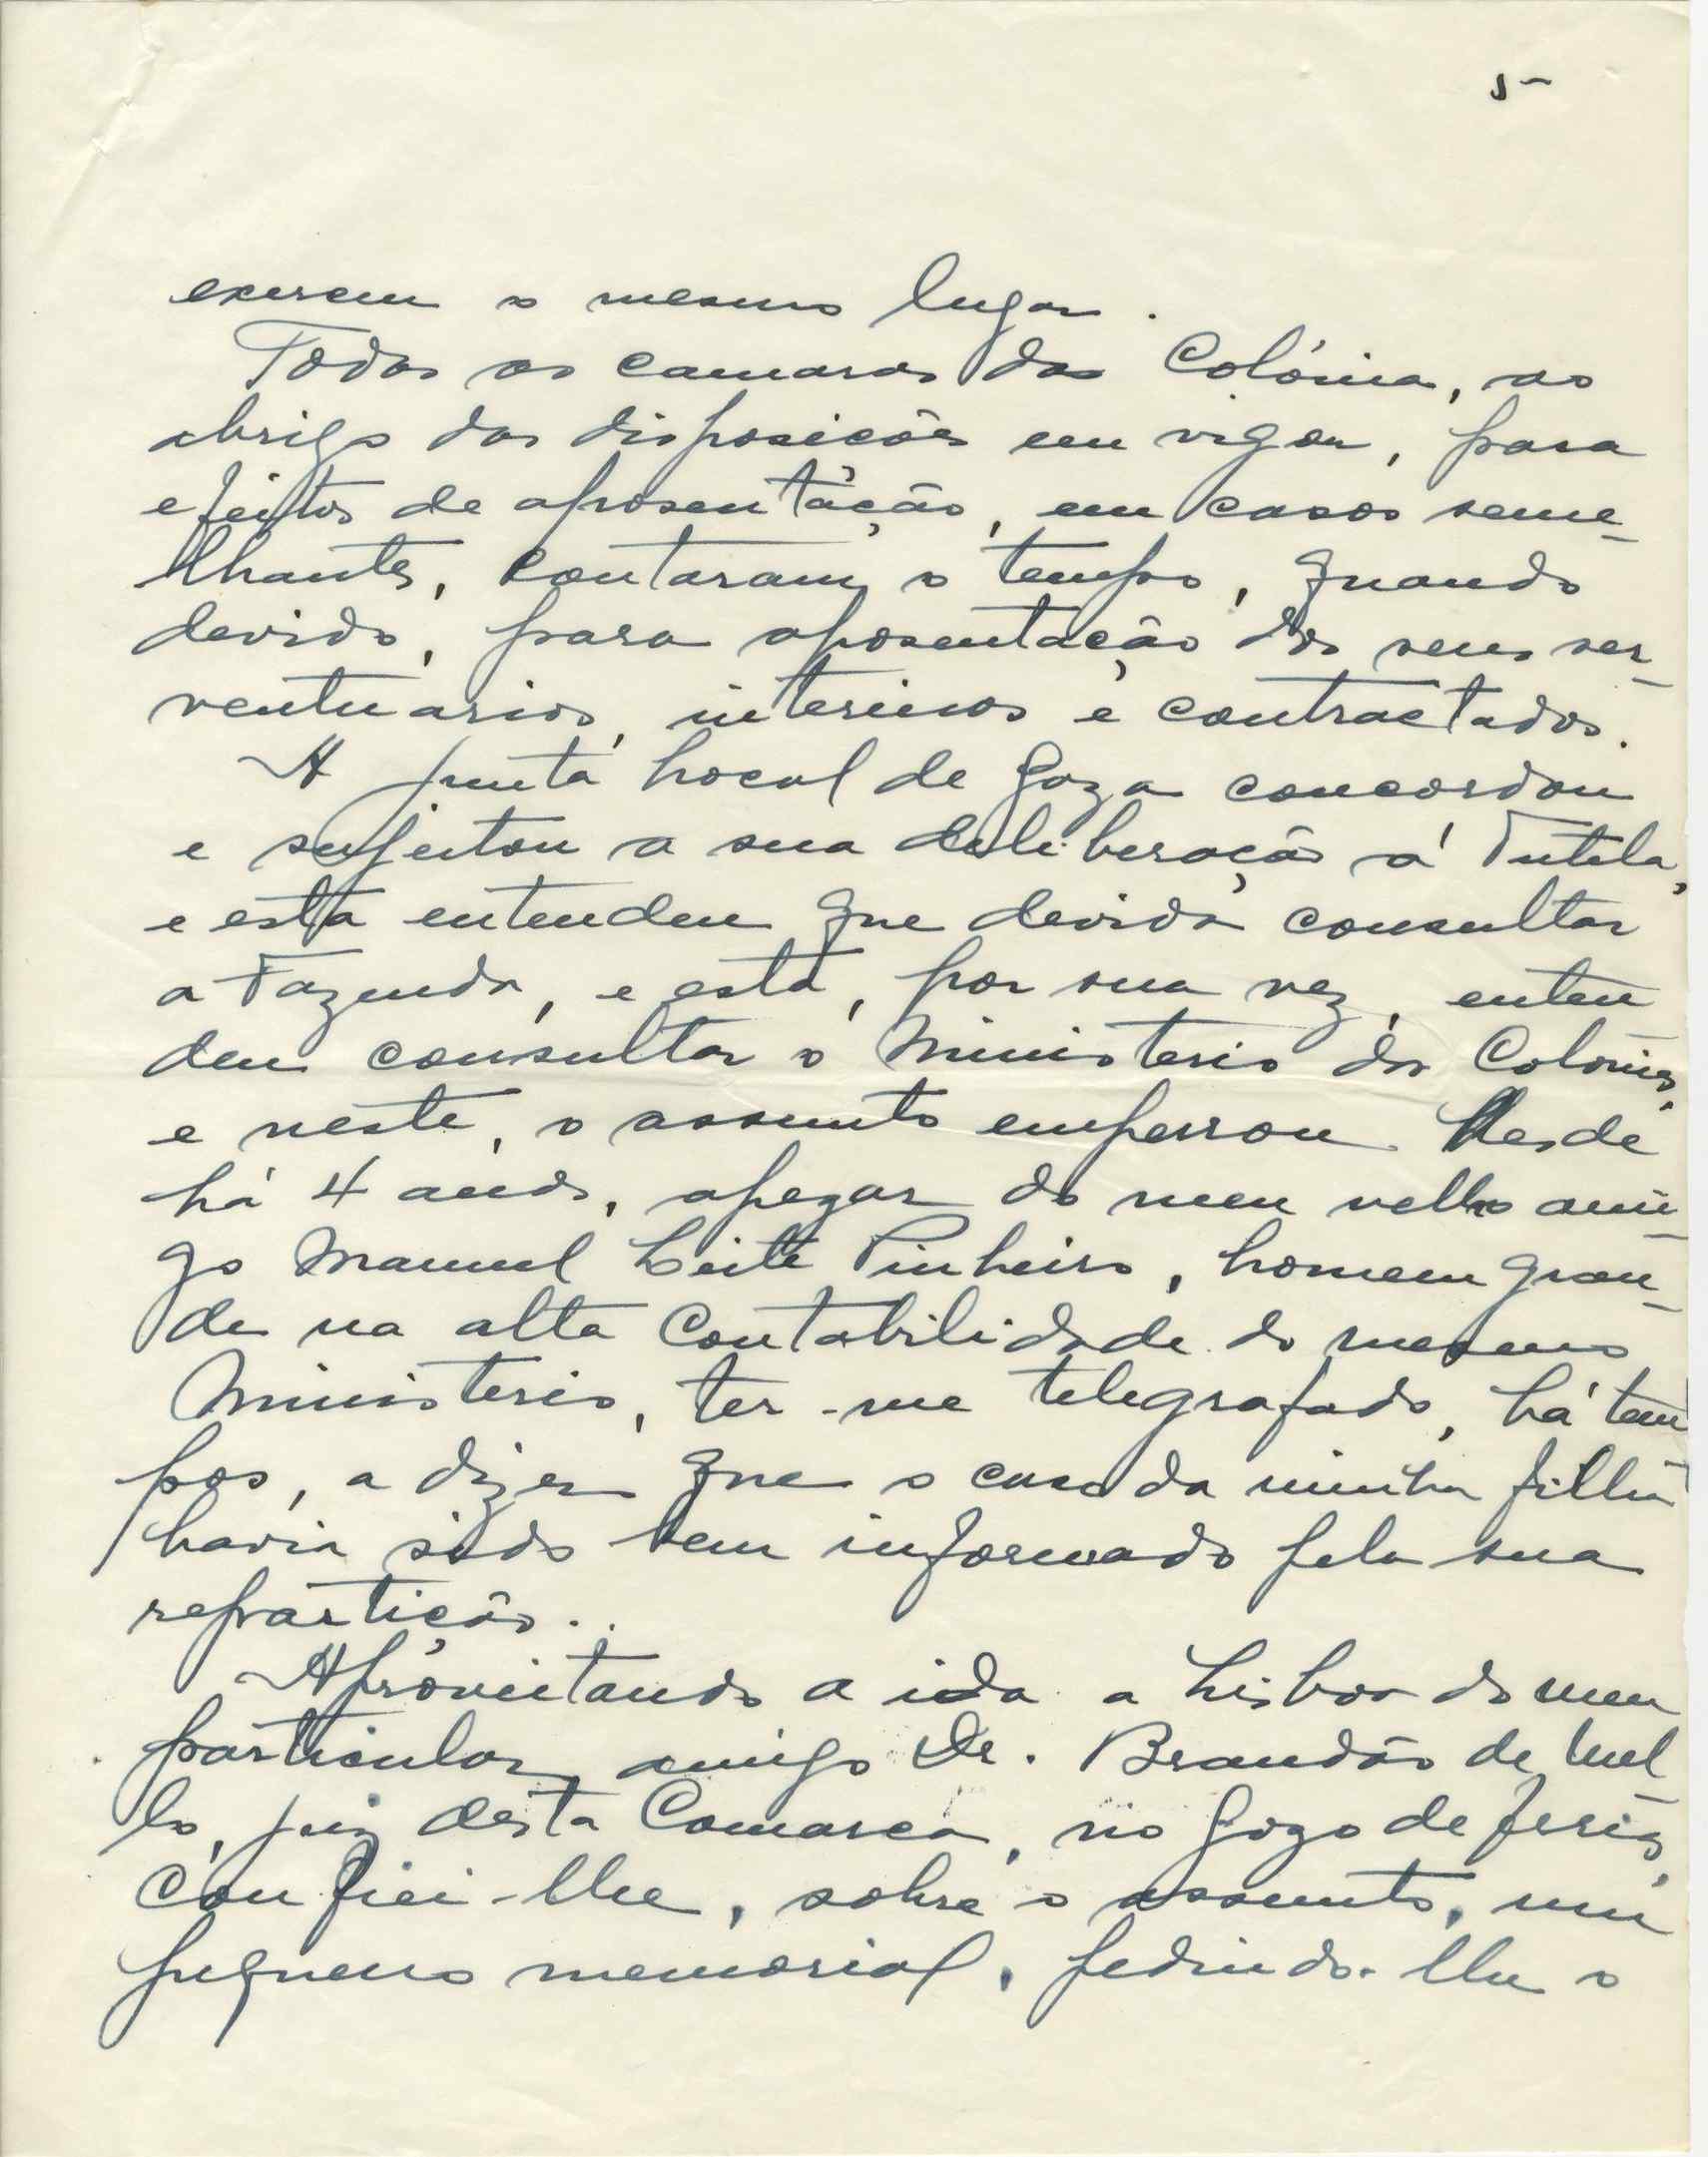 5
exercem o mesmo lugar.
Todas as camaras da Colónia, ao
abrigo das disposições em vigor, para
efeitos de aposentação, em casos seme-
lhantes, contaram o tempo, quando
devido, para aposentação dos seus ser-
ventuarios, interinos e contractados.
A Junta Local de Gaza concordou
e sujeitou a sua deliberação á Tutela,
e esta entendeu que devida consultar
a Fazenda, e esta, por sua vez, enten
deu consultar o Ministerio das Colonias,
e neste, o assunto emperrou. Desde
há 4 anos, apezar do meu velho ami-
go Manuel Leite Pinheiro, homem gran-
de na alta Contabilidade do mesmo
Ministerio, ter-me telegrafado, há tem
pos, a dizer que o caso da minha filha
havia sido bem informado pela sua
repartição..
Aproveitando a ida a Lisboa do meu
particular amigo Dr. Brandão de Mel-
lo, juiz desta Comarca, no gozo de ferias,
confiei-lhe, sobre o assunto, um
pequeno memorial, pedindo-lhe o